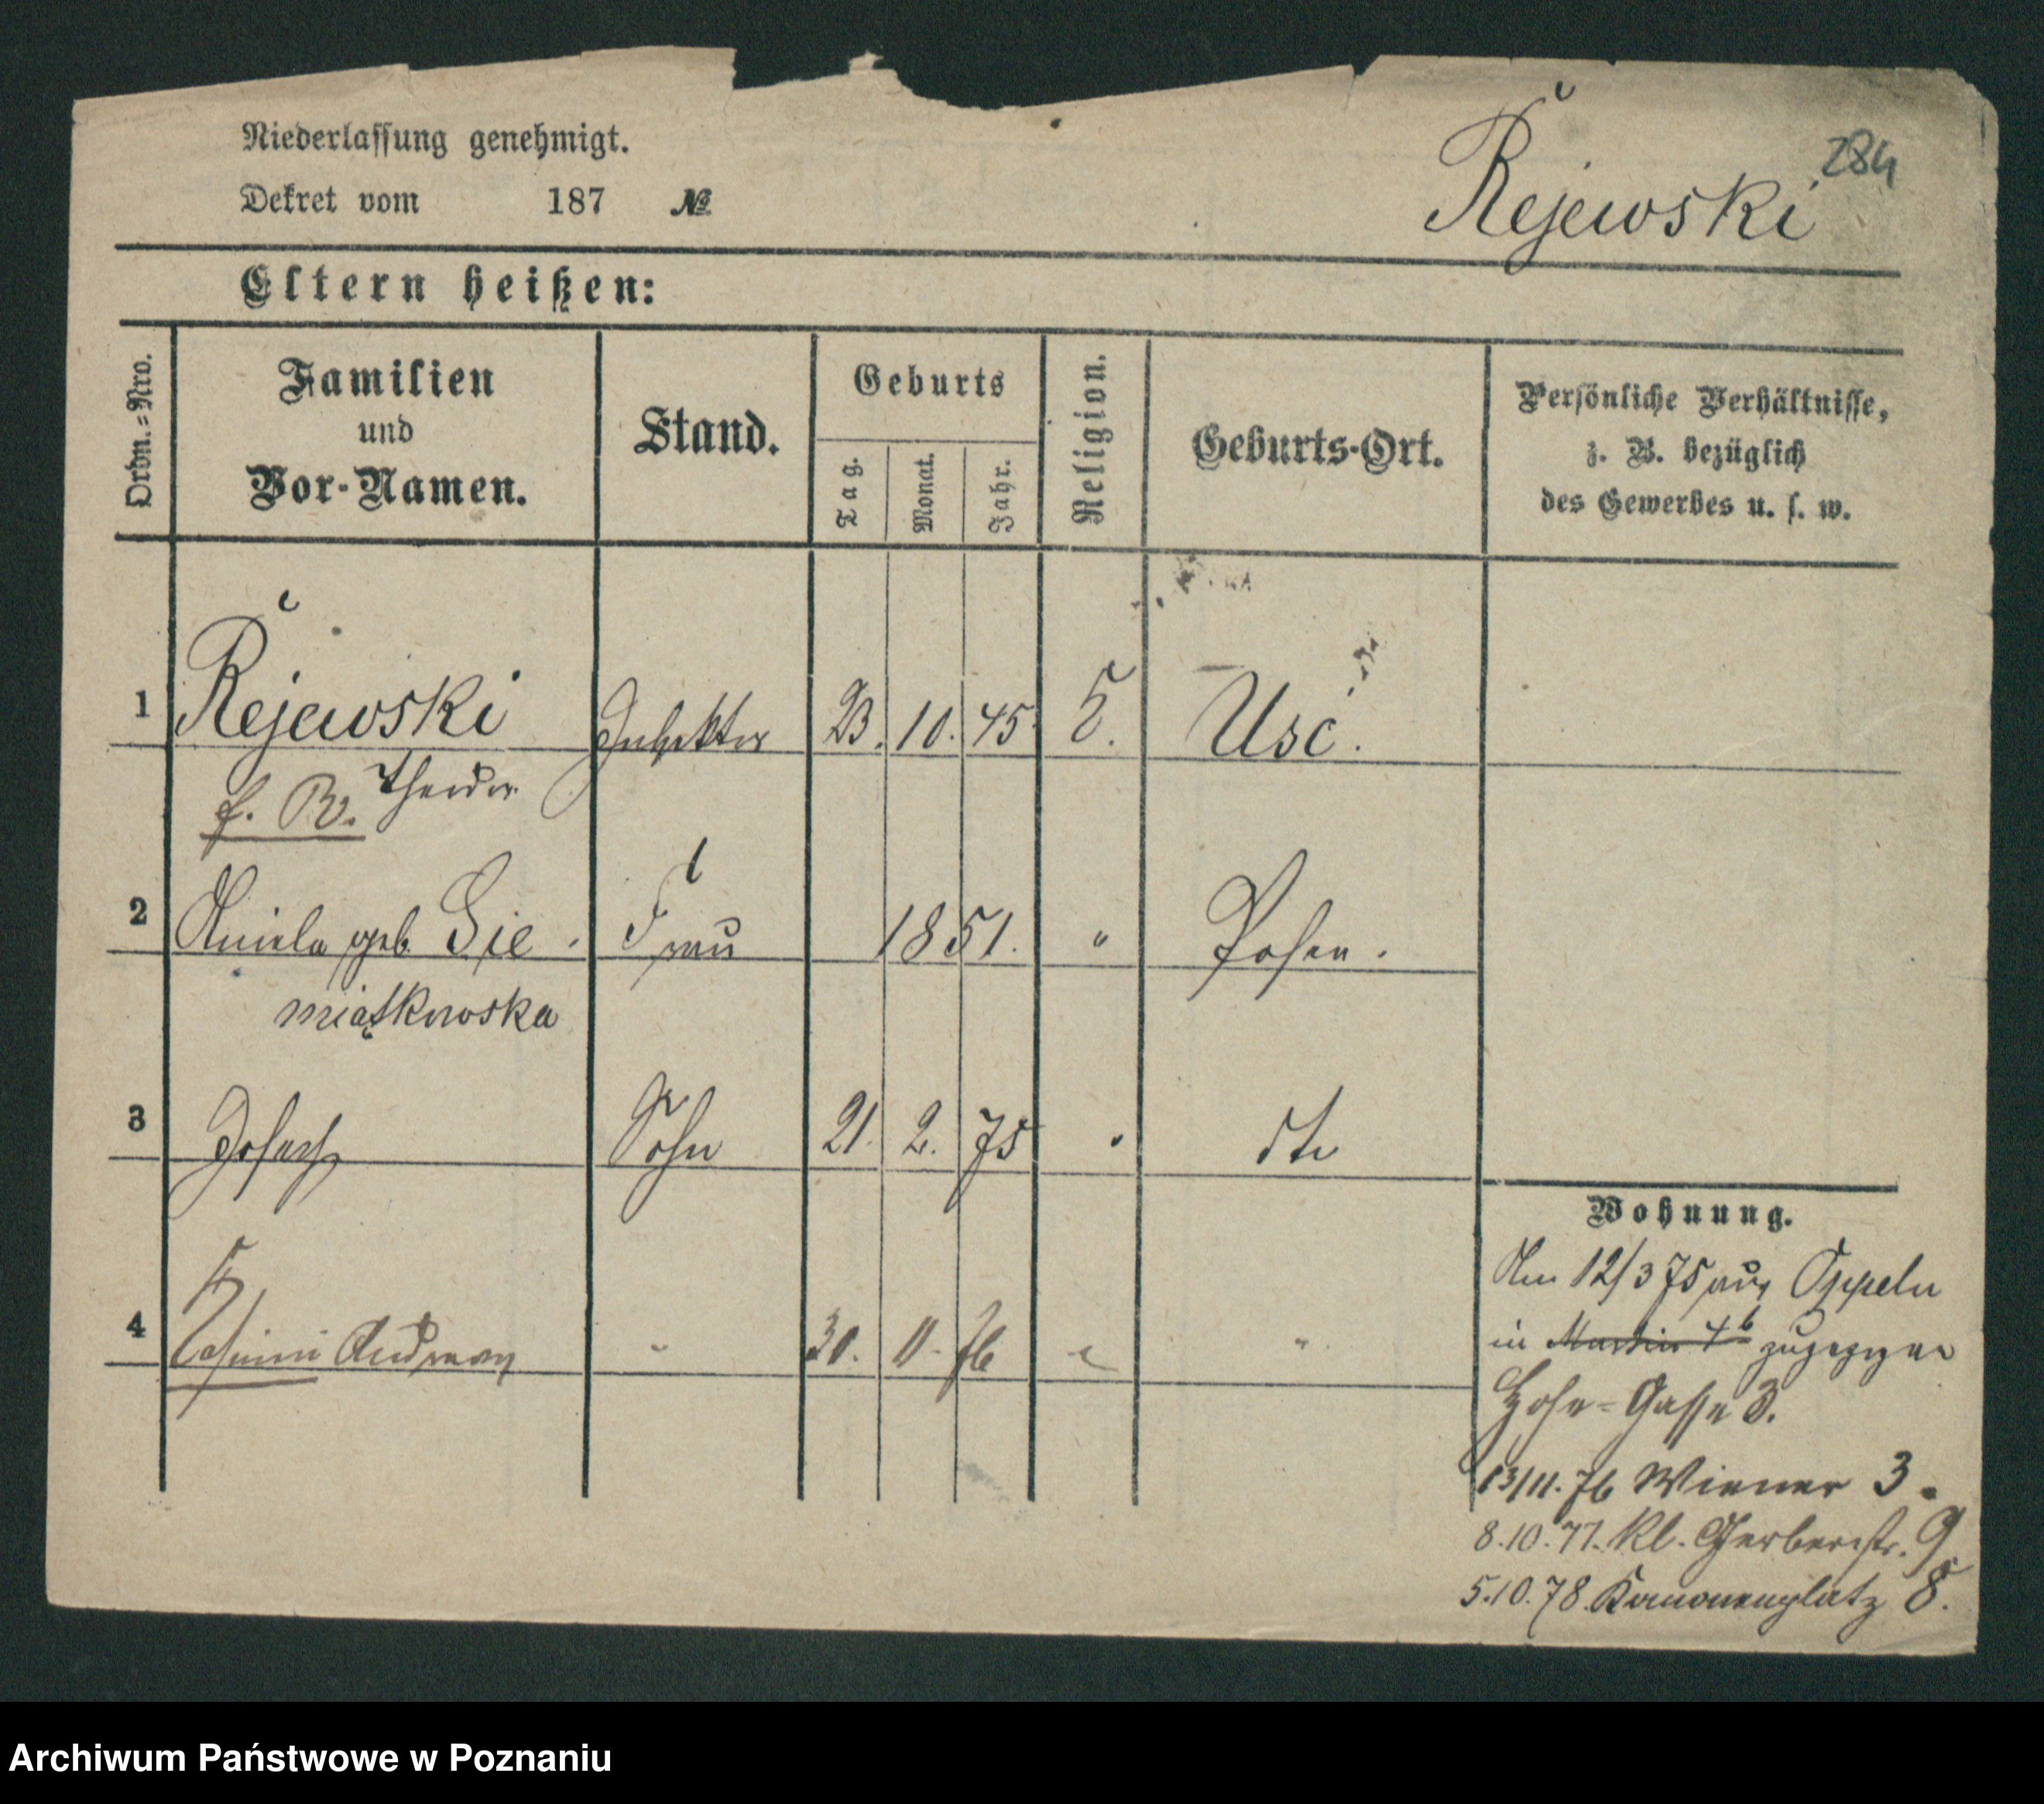 Niederlassung genehmigt.
Dekret vom 187 №
Řejewski
284
Eltern heißen:
Ordn.=Nro.
Familien
und
Vor-Namen.
Stand.
Geburts
Tag.
Monat.
Jahr.
Religion.
Geburts-Ort.
Persönliche Verhältnisse,
z. B. bezüglich
des Gewerbes u. s. w.
1 Řejewski Inspektor 23. 10. 45. Usć.
Theodor
2 Aniela geb. Sie- Frau 1851. " Posen.
miątkowska
3 Joseph Sohn 21. 2. 75 " dto
4 Casimir Andreas " 30. 11. 76 " "
Wohnung.
Am 12/3 75 aus Oppeln
in Martin 4b zugezogen
Hohe=Gasse 3.
13/11. 76 Wiener 3.
8.10.77. Kl. Gerberstr. 9
5.10.78. Kanonenplatz 8.
Archiwum Państwowe w Poznaniu